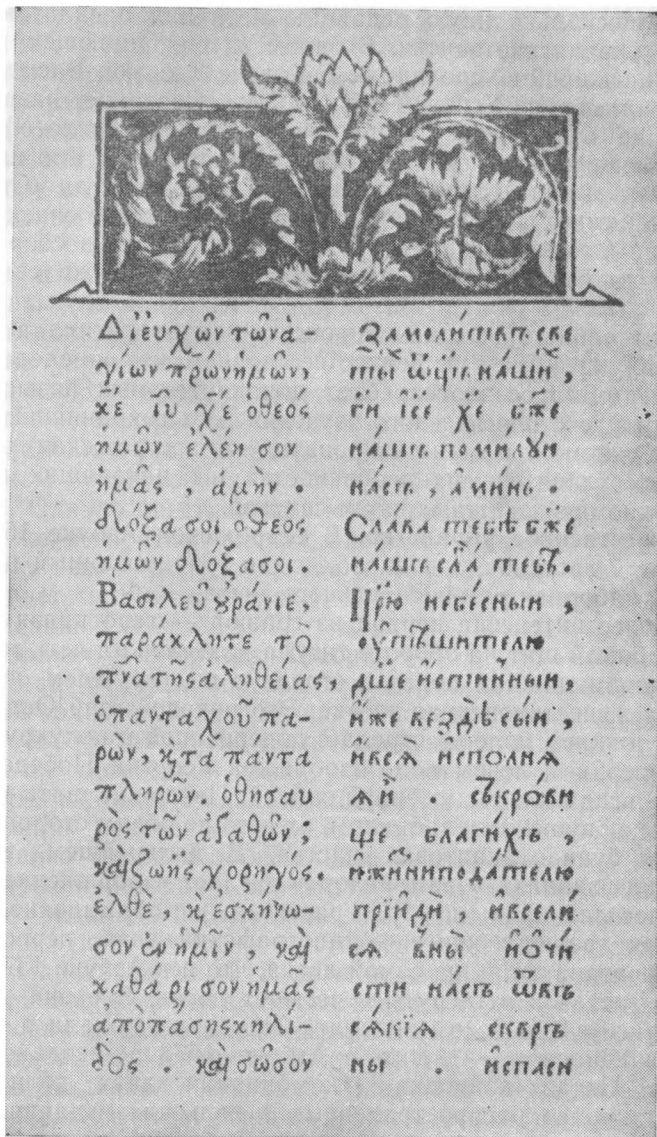 Διʼ εὐχῶν τῶν ἁ
γίων πρ̃ων ἡμῶν,
κε ἰυ χε ὁ θεος
ημῶν ελέη σον
ἡμᾶς , αμὴν .
Δόξα σοι ο θεος
ημῶν Δόξα σοι.
Βασιλεῦ ȣράνιε,
παράκλητε το
πν̃α τῆς αληθειας,
ὁ πανταχοῦ πα-
ρων, κ̀ τὰ παντα
πληρῶν. ὁ θησαυ
ρὸς τῶν αγαθῶν;
καὶ ζωῆς χορηγος.
ελθε, κ̀ εσκήνω-
σον ἐν ἡμῖν, καὶ
καθάρισον ημᾶς
απο πάσης κηλί-
δος . καὶ σῶσον
За молитвъ све
ты́ ѿц҃ъ на́ши́ ,
г҃и і҃се х҃е бж҃е
на́шъ помилꙋи
на́съ , а́минь .
Сла́ва тебѣ бж҃е
на́шъ сла҃ тебѣ .
Цр҃ю небесныи ,
ѹтѣшителю
дш҃е и́стинныи ,
и́же вездѣ сы́и ,
и́ всѧ̀ исполнѧ́
ѧи . съкрови
ще благи́хъ ,
и жизни подателю
прїиди̂ и́ всели́
сѧ в ны̀ и́ о́чи
сти на́съ ѿ въ
сѧ́кїѧ сквръ
ны . и́ спаси